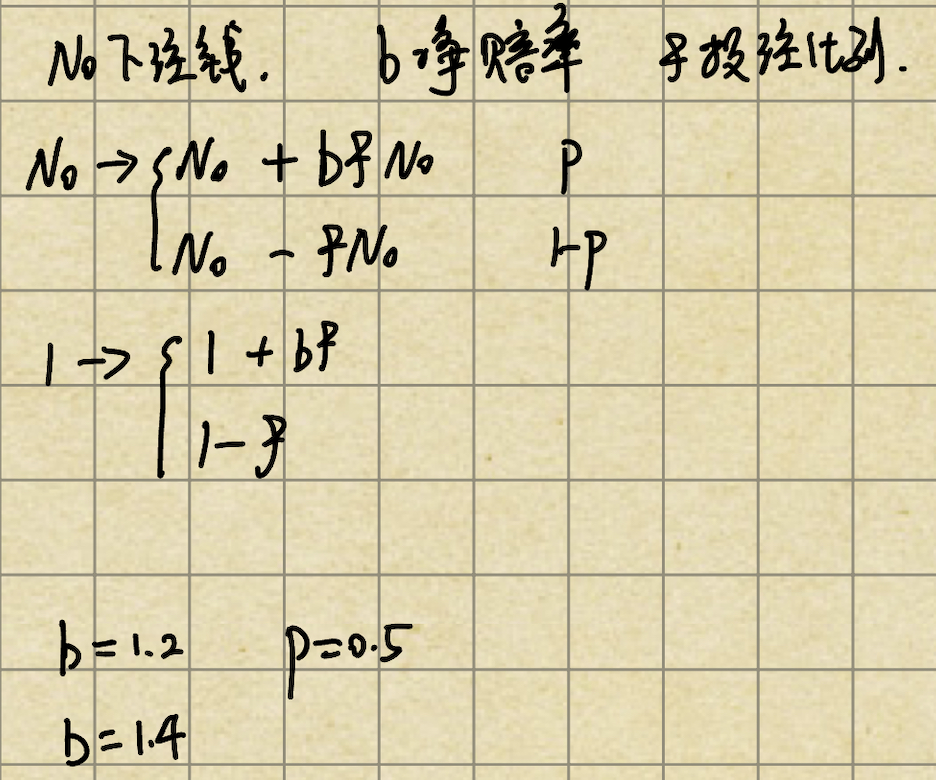 N₀ 下注钱. b 净赔率 f 投注比例.
N₀ → { N₀ + bfN₀ p
N₀ - fN₀ 1-p
1 → { 1 + bf
1 - f
b = 1.2 p = 0.5
b = 1.4